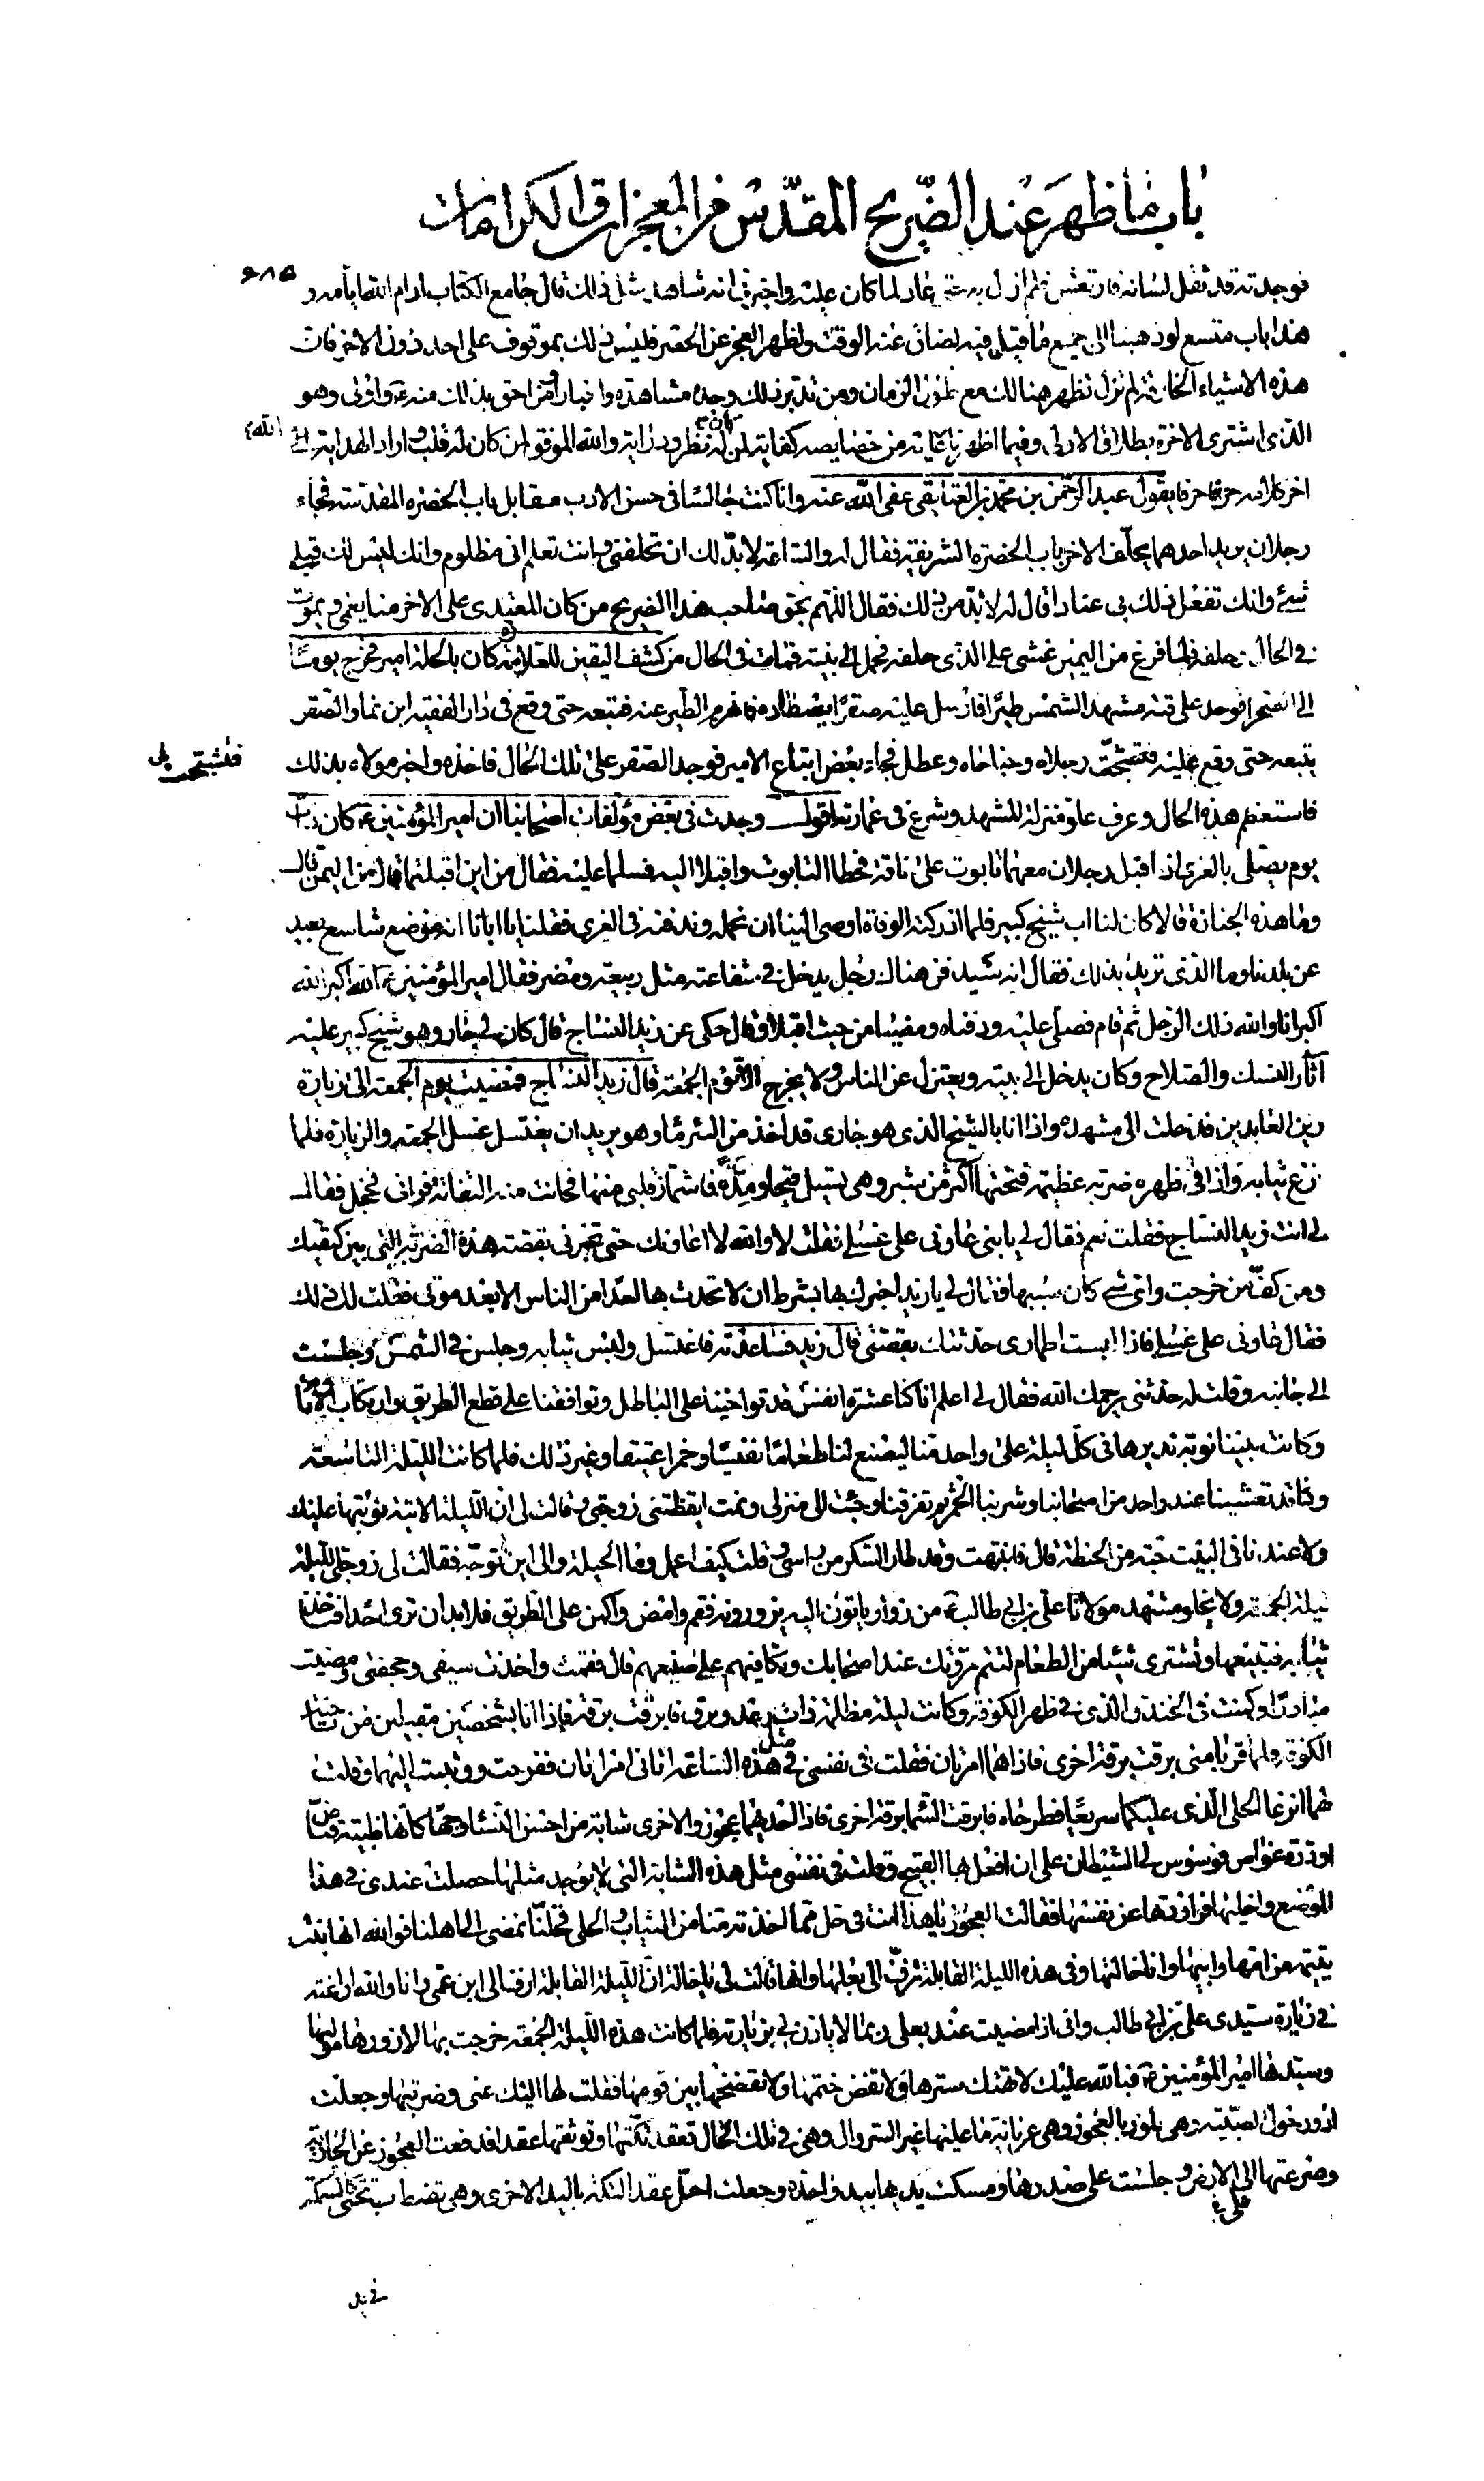 باب ما ظهر عند الضريح المقدس من المعجزات والكرامات
۶۸۵
فوجدته قد ثقل لسانه فارتعش فلم ازل به حتى عاد لما كان عليه واخبرني انه شاهد مثل ذلك قال جامع الكتاب ادام الله ايامه و
هذا باب متسع لو ذهبنا الى جميع ما قيل فيه لضاق عنه الوقت ولظهر العجز عن الحصر فليس ذلك بموقوف على احد دون الاخر فان
هذه الاشياء الخارقة لم تزل تظهر هنالك مع طول الزمان ومن تدبر ذلك وجده مشاهدة واخبارا ومن احق بذلك منه ع واولى وهو
الذي اشترى الاخرة بطلاق الاولى وفيما اظهرنا الله من خصايصه كفاية لمن كان له نظر ودراية والله الموفق لمن كان له قلب واراد الهداية الى الله
اخر كلامه حرفا حرفا يقول عبد الرحمن بن محمد بن العتايقي عفى الله عنه وانا كنت جالسا في حسن الادب مقابل باب الحضرة المقدسة فجاء
رجلان يريد احدهما يحلف الاخر بباب الحضرة الشريفة فقال له والساعة لا بد لك ان تحلفني وانت تعلم اني مظلوم وانك ليس لك قبلي
شئ وانك تفعل ذلك بي عنادا قال له لا بد من ذلك فقال اللهم بحق صاحب هذا الضريح من كان المعتدي على الاخر منا يغمى ويموت
في الحال وحلفه فلما فرغ من اليمين غشي على الذي حلفه فحمل الى بيته فمات في الحال من كشف اليقين للعلامة ره كان بالحلة امير فخرج يوما
الى الصحراء فوجد على قبة مشهد الشمس طيرا فارسل عليه صقرا يصطاده فانهزم الطير عنه فتبعه حتى وقع في دار الفقيه ابن نما والصقر
يتبعه حتى وقع عليه فتشنجت رجلاه وجناحاه وعطل فجاء بعض اتباع الامير فوجد الصقر على تلك الحال فاخذه واخبر مولاه بذلك
فاستعظم هذه الحال وعرف علو منزلة المشهد وشرع في عمارته اقول وجدت في بعض مؤلفات اصحابنا ان امير المؤمنين ع كان ذات
يوم يصلي بالغري اذ اقبل رجلان معهما تابوت على ناقة فحطا التابوت واقبلا اليه فسلما عليه فقال من اين اقبلتما قالا من اليمن قال
وما هذه الجنازة قالا كان لنا اب شيخ كبير فلما ادركته الوفاة اوصى الينا ان نحمله وندفنه في الغري فقلنا يا ابانا انه موضع شاسع بعيد
عن بلدنا وما الذي تريد بذلك فقال انه سيدفن هناك رجل يدخل في شفاعته مثل ربيعة ومضر فقال امير المؤمنين ع الله اكبر الله
اكبر انا والله ذلك الرجل ثم قام فصلى عليه ودفناه ومضيا من حيث اقبلا وقال حكى عن زيد النساج قال كان لي جار وهو شيخ كبير عليه
آثار النسك والصلاح وكان يدخل الى بيته ويعتزل عن الناس ولا يخرج الا يوم الجمعة قال زيد النساج فمضيت يوم الجمعة الى زيارة
زين العابدين فدخلت الى مشهده واذا انا بالشيخ الذي هو جاري قد اخذ من البئر ماء وهو يريد ان يغتسل غسل الجمعة والزيارة فلما
نزع ثيابه واذا في ظهره ضربة عظيمة فتحتها اكثر من شبر وهي تسيل قيحا ومدة فاشماز قلبي منها فحانت منه التفاتة فراني فخجل فقال
لي انت زيد النساج فقلت نعم فقال لي يا بني عاوني على غسلي فقلت لا والله لا اعاونك حتى تخبرني بقصة هذه الضربة التي بين كتفيك
ومن كف من خرجت واي شئ كان سببها فقال لي يا زيد اخبرك بها بشرط ان لا تحدث بها احدا من الناس الا بعد موتي فقلت لك ذلك
فقال عاوني على غسلي فاذا لبست اطماري حدثتك بقصتي قال زيد فساعدته فاغتسل ولبس ثيابه وجلس في الشمس وجلست
الى جانبه وقلت له حدثني يرحمك الله فقال لي اعلم انا كنا عشرة انفس قد تواخينا على الباطل وتوافقنا على قطع الطريق وارتكاب الاثام
وكانت بيننا نوبة نديرها في كل ليلة على واحد منا ليصنع لنا طعاما نفيسا وخمرا عتيقا وغير ذلك فلما كانت الليلة التاسعة
وكنا قد تعشينا عند واحد من اصحابنا وشربنا الخمر ثم تفرقنا وجئت الى منزلي ونمت ايقظتني زوجتي وقالت لي ان الليلة الاتية نوبتها عليك
ولا عندنا في البيت حبة من الحنطة قال فانتبهت وقد طار السكر من راسي وقلت كيف اعمل وما الحيلة والى اين اتوجه فقالت لي زوجتي الليلة
ليلة الجمعة ولا يخلو مشهد مولانا علي بن ابي طالب ع من زوار ياتون اليه يزورونه فقم وامض واكمن على الطريق فلا بد ان ترى احدا فتاخذ
ثيابه فتبيعها وتشتري شيئا من الطعام لتتم مروتك عند اصحابك وتكافيهم على صنيعهم قال فقمت واخذت سيفي وجحفتي ومضيت
مبادرا وكمنت في الخندق الذي في ظهر الكوفة وكانت ليلة مظلمة ذات رعد وبرق فابرقت برقة فاذا انا بشخصين مقبلين من ناحية
الكوفة فلما قربا مني برقت برقة اخرى فاذا هما امراتان فقلت في نفسي في مثل هذه الساعة اتاني امراتان ففرحت ووثبت اليهما وقلت
لهما انزعا الحلي الذي عليكما سريعا فطرحاه فابرقت السماء برقة اخرى فاذا احديهما عجوز والاخرى شابة من احسن النساء وجها كانها ظبية قناص
او درة غواص فوسوس لي الشيطان على ان افعل بها القبيح وقلت في نفسي مثل هذه الشابة التي لا يوجد مثلها حصلت عندي في هذا
الموضع واخليها فراودتها عن نفسها فقالت العجوز يا هذا انت في حل مما اخذته منا من الثياب والحلي فخلنا نمضي الى اهلنا فوالله انها بنت
يتيمة من امها وابيها وانا خالتها وفي هذه الليلة القابلة تزف الى بعلها وانها قالت لي يا خالة ان الليلة القابلة ازف الى ابن عمي وانا والله راغبة
في زيارة سيدي علي بن ابي طالب واني اذا مضيت عند بعلي ربما لا ياذن لي بزيارته فلما كانت هذه الليلة الجمعة خرجت بها لازورها مولاها
وسيدها امير المؤمنين ع فبالله عليك لا تهتك سترها ولا تفض ختمها ولا تفضحها بين قومها فقلت لها اليك عني وضربتها وجعلت
ادور حول الصبية وهي تلوذ بالعجوز وهي عريانة ما عليها غير السروال وهي في تلك الحال تعقد تكتها وتوثقها عقدا فدفعت العجوز عن الجارية
وصرعتها الى الارض وجلست على صدرها ومسكت يديها بيد واحدة وجعلت احل عقد التكة باليد الاخرى وهي تضطرب تحتي كالسمكة
في يد